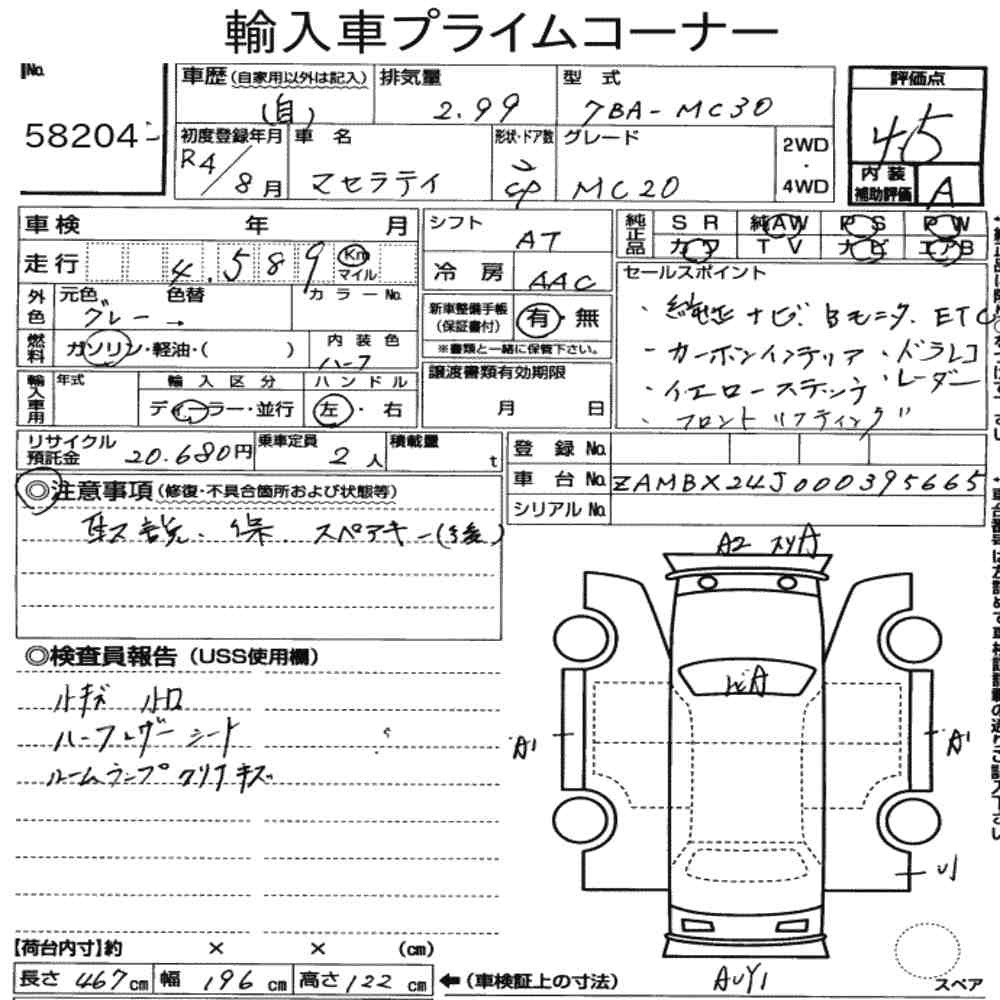 輸入車プライムコーナー
No. 58204
車歴(自家用以外は記入) (自)
排気量 2.99
型式 7BA-MC30
評価点 4.5
初度登録年月 R4/8月
車名 マセラティ
形状・ドア数 2 cp
グレード MC20
2WD・4WD
内装補助評価 A
車検 年 月
走行 4.589 Km マイル
外色 元色 グレー → 色替
カラーNo.
燃料 ガソリン・軽油・( )
内装色 ハーフ
輸入車用 年式
輸入区分 ディーラー・並行
ハンドル 左・右
シフト AT
冷房 AAC
新車整備手帳(保証書付) 有・無
※書類と一緒に保管下さい。
譲渡書類有効期限
月 日
純正品 SR 純AW PS PW
カワ TV ナビ エアB
セールスポイント
・純正ナビ.Bモニタ.ETC
・カーボンインテリア・ドラレコ
・イエローステッチ・レーダー
・フロントリフティング
リサイクル預託金 20.680円
乗車定員 2人
積載量 t
登録No.
車台No. ZAMBX24J000395665
シリアルNo.
◎注意事項(修復・不具合箇所および状態等)
取説.保 スペアキー(後)
◎検査員報告(USS使用欄)
小キズ 小凹
ハーフレザーシート
ルームランプクリアキズ
A2 A
A
A1
A1
U1
AUY1
【荷台内寸】約 × × (cm)
長さ 467cm 幅 196cm 高さ 122cm
←(車検証上の寸法)
スペア